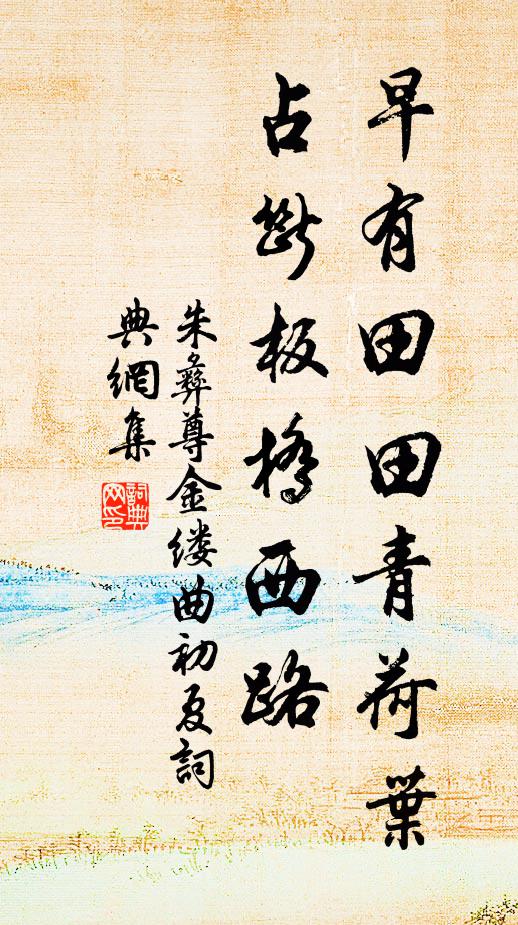 早有田田青荷葉
占断板橋西路
朱彝尊金缕曲初夏詞
典網集
詞典
网印